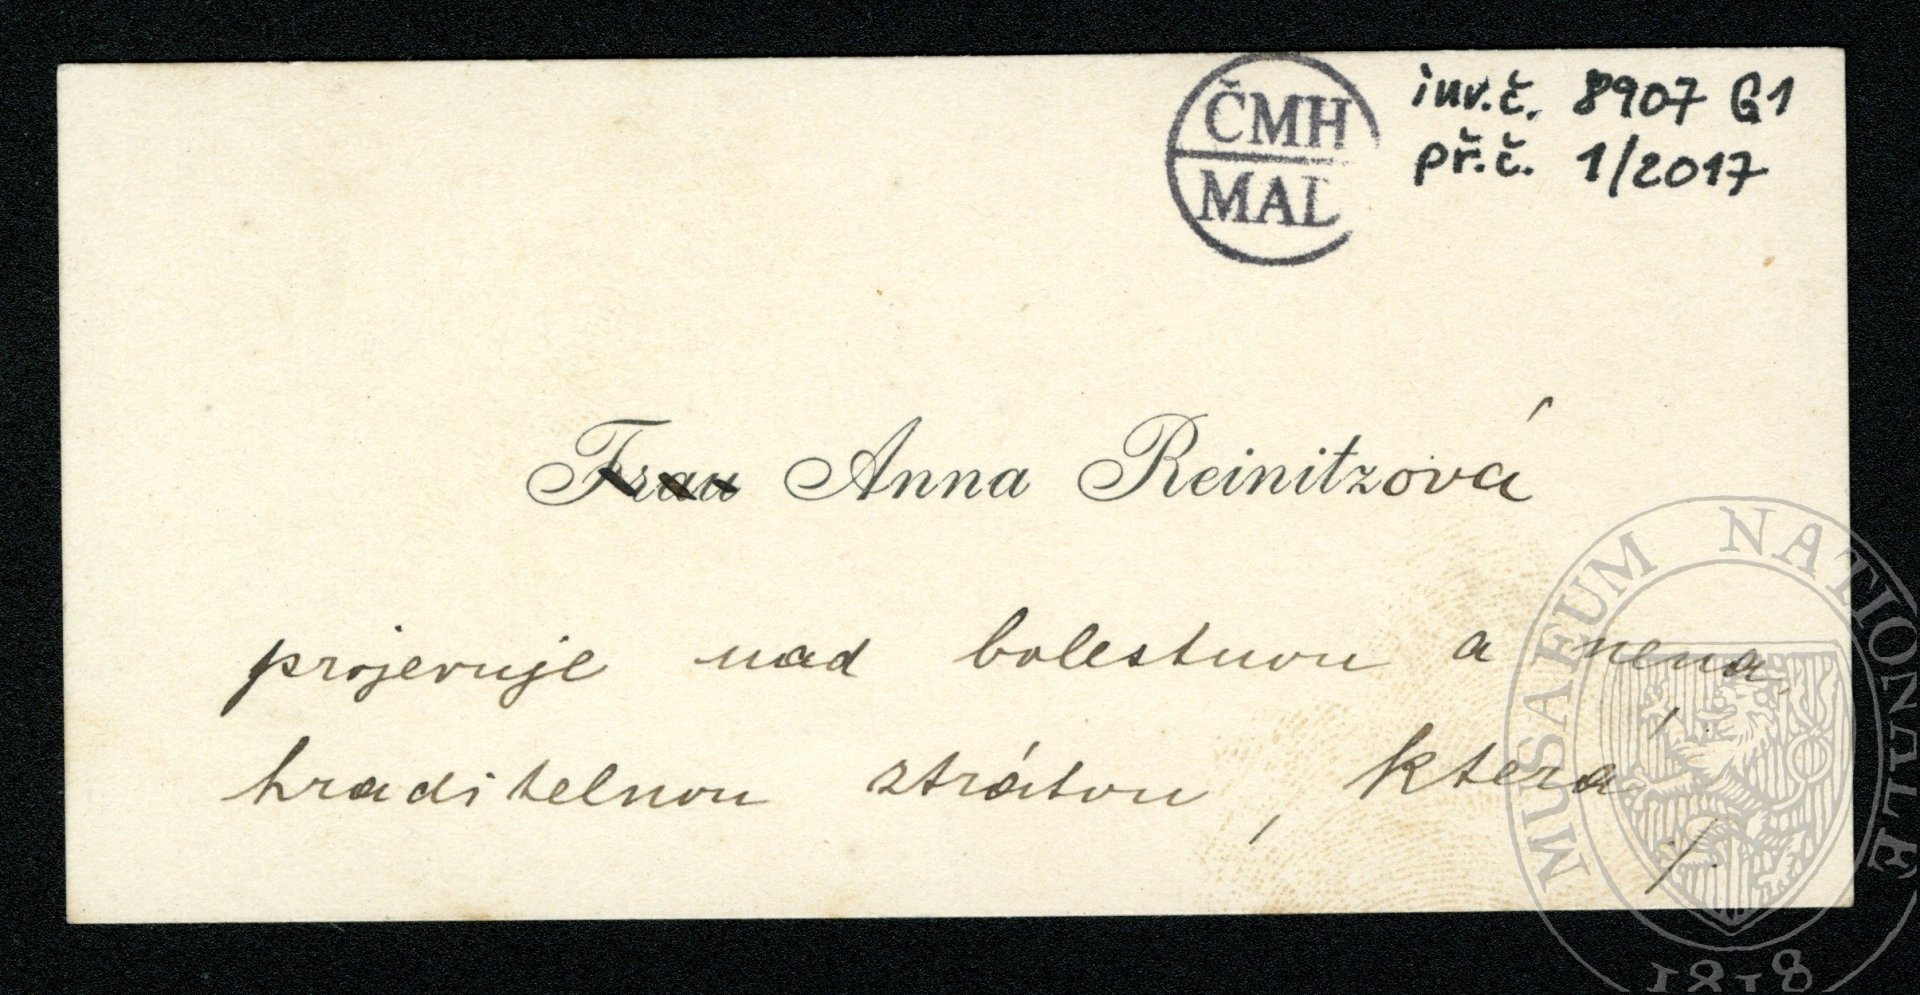 ČMH
MAL
inv.č. 8907 G1
př.č. 1/2017
Frau Anna Reinitzová
projevuje nad bolestnou a nena
hraditelnou ztrátou, která
./.
MUSAEUM NATIONALE
1818